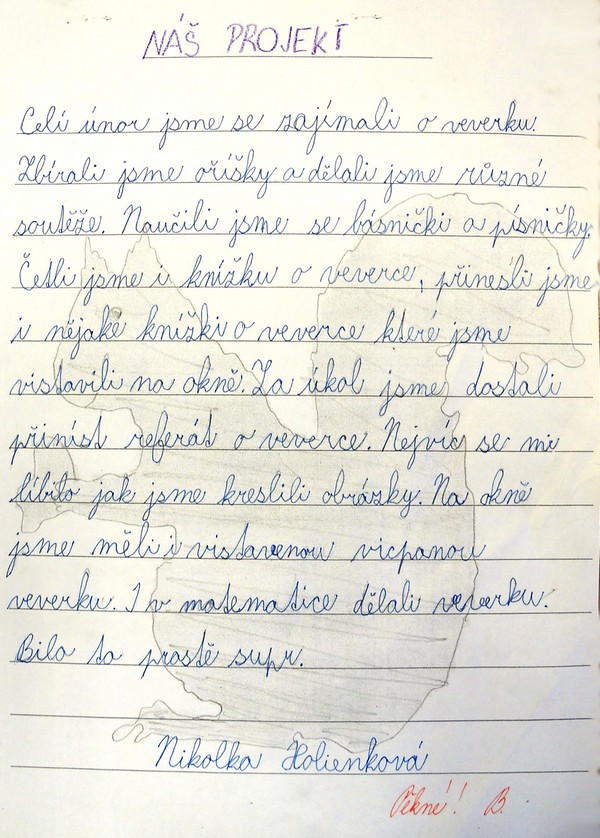 NÁŠ PROJEKT
Celí únor jsme se zajímali o veverku.
Zbírali jsme oříšky a dělali jsme různé
soutěže. Naučili jsme se básnički a písničky.
Četli jsme i knížku o veverce, přinesli jsme
i nějaké knížki o veverce které jsme
vistavili na okně. Za úkol jsme dostali
přinést referát o veverce. Nejvíc se mi
líbilo jak jsme kreslili obrázky. Na okně
jsme měli i vistavenou vicpanou
veverku. I v matematice dělali veverku.
Bilo to prostě supr.
Nikolka Holienková
Pěkné! B.